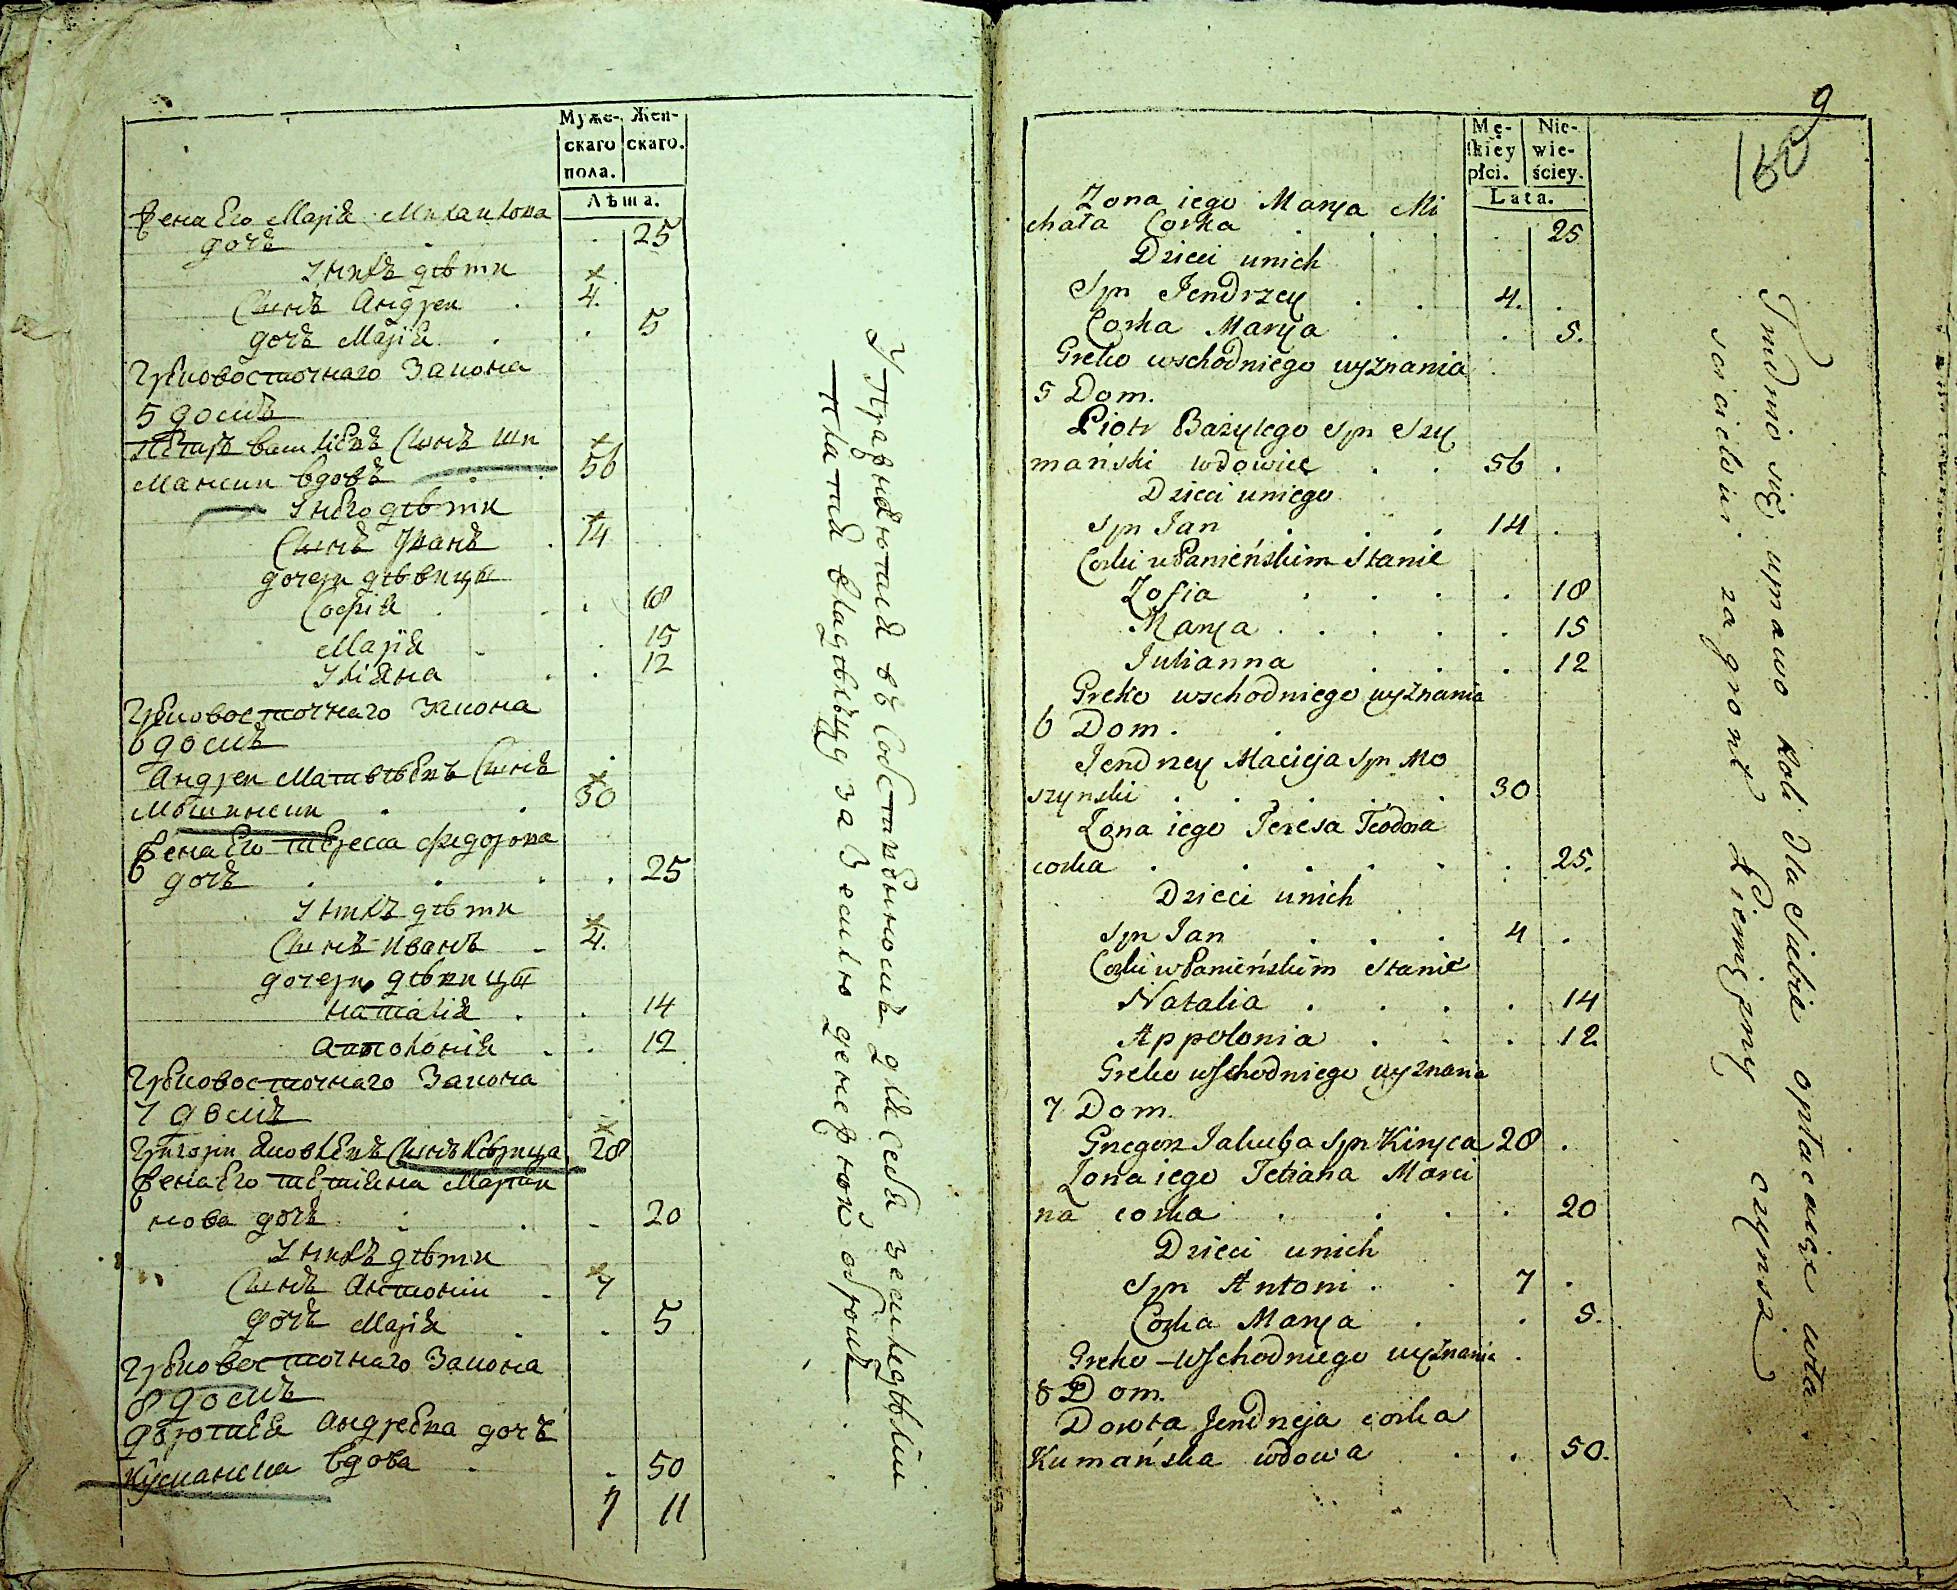 Муже-
скаго
пола.
Жен-
скаго.
Лѣта.
Жена Его Марія Михаилова
дочь 25
У нихъ дѣти
Сынъ Андреи 4.
дочь Марія 5
Грековосточнаго Закона
5 домъ
Петръ василіевъ Сынъ Ши
мански вдовъ 56
У него дѣти
Сынъ Иванъ 14
дочери дѣвицы
Софія 18
Марія 15
Уліяна 12
Грековосточнаго Закона
6 домъ
Андреи Матвѣевъ Сынъ
Мошински 30
Жена Его тереса федорова
дочь 25
У нихъ дѣти
Сынъ Иванъ 4.
дочери дѣвицы
Наталія 14
Аполонія 12
Грековосточнаго Закона
7 домъ
Григори Яковлевъ Сынъ Кѣрица 28
Жена Его тетіяна Марти
нова дочь 20
У нихъ дѣти
Сынъ Антоніи 7
дочь Марія 5
Грековосточнаго Закона
8 домъ
Доротея андреева дочь
Куманска вдова 50
7 11
Упражняются въ Собственномъ для себя земледѣліи
платя владѣльцу за Землю денежной оброкъ
9
180
Mę-
skiey
płci.
Nie-
wie-
ściey.
Lata.
Zona iego Marya Mi
chała Corka 25
Dzieci unich
Syn Jendrzey 4.
Corka Marya 5.
Greko wschodniego wyznania
5 Dom.
Piotr Bazylego syn Szy
mański wdowiec 56
Dzieci uniego
Syn Jan 14
Corki w Panieńskim Stanie
Zofia 18
Marya 15
Julianna 12
Greko wschodniego wyznania
6 Dom.
Jendrzey Macieja Syn Mo
szynski 30
Zona iego Teresa Teodora
corka 25.
Dzieci unich
Syn Jan 4
Corki w Panieńskim Stanie
Natalia 14
Appolonia 12
Greko wschodniego wyznania
7 Dom.
Gregorz Jakuba Syn Kiryca 28
Zona iego Tetiana Marci
na corka 20
Dzieci unich
Syn Antoni 7
Corka Marya 5.
Greko-wschodniego wyznania
8 Dom.
Dorota Jendrzeja corka
Kumańska wdowa 50.
Trudnio się uprawo Roli dla siebie opłacaiąc wła
scicielowi za gront Pieniężny czynsz